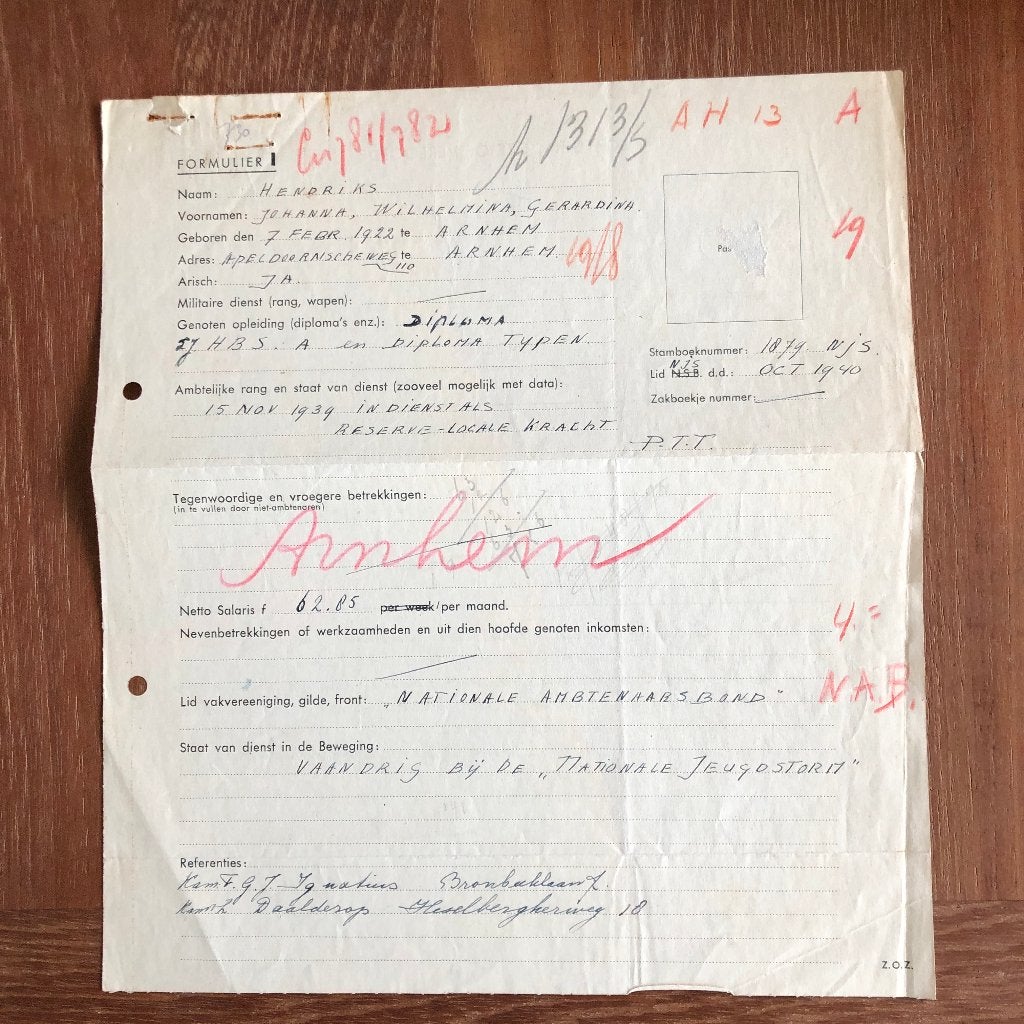 AH 13 A
FORMULIER I
Naam: HENDRIKS
Voornamen: JOHANNA, WILHELMINA, GERARDINA.
Geboren den 7 FEBR. 1922 te ARNHEM
19
Adres: APELDOORNSCHEWEG 110 te ARNHEM.
19/8
Pas
Arisch: JA.
Militaire dienst (rang, wapen):
Genoten opleiding (diploma's enz.): DIPLOMA
HBS. A en DIPLOMA TYPEN.
Stamboeknummer: 1879. NJS.
NJS
Lid N.S.B. d.d.: OCT 1940
Zakboekje nummer:
Ambtelijke rang en staat van dienst (zooveel mogelijk met data):
15 NOV 1939 IN DIENST ALS
RESERVE-LOCALE KRACHT
P.T.T.
Tegenwoordige en vroegere betrekkingen:
(in te vullen door niet-ambtenaren)
Arnhem
Netto Salaris f 62.85 per week/per maand.
Nevenbetrekkingen of werkzaamheden en uit dien hoofde genoten inkomsten:
4.=
Lid vakvereeniging, gilde, front: „NATIONALE AMBTENAARSBOND"
N.A.B.
Staat van dienst in de Beweging:
VAANDRIG BIJ DE „NATIONALE JEUGDSTORM"
Referenties:
G. J. Ignatius
Daalderop 18
Z.O.Z.